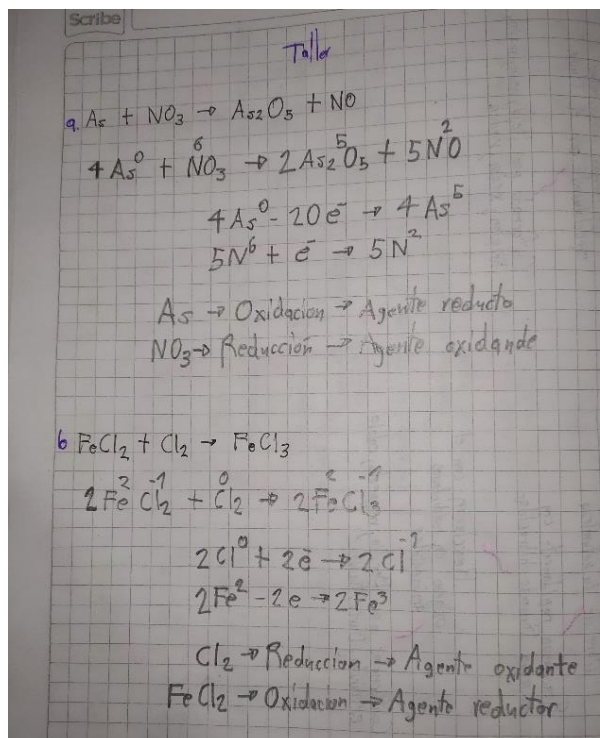 Scribe
Taller
a. As + NO3 → As2O5 + NO
4As⁰ + N⁶O3 → 2As2⁵O5 + 5N²O
4As⁰ - 20e⁻ → 4As⁵
5N⁶ + e⁻ → 5N²
As → Oxidacion → Agente reducto
NO3 → Reducción → Agente oxidande
b FeCl2 + Cl2 → FeCl3
2Fe²Cl2⁻¹ + Cl2⁰ → 2Fe²Cl3⁻¹
2Cl⁰ + 2e⁻ → 2Cl⁻¹
2Fe² - 2e → 2Fe³
Cl2 → Reduccion → Agente oxidante
FeCl2 → Oxidacion → Agente reductor